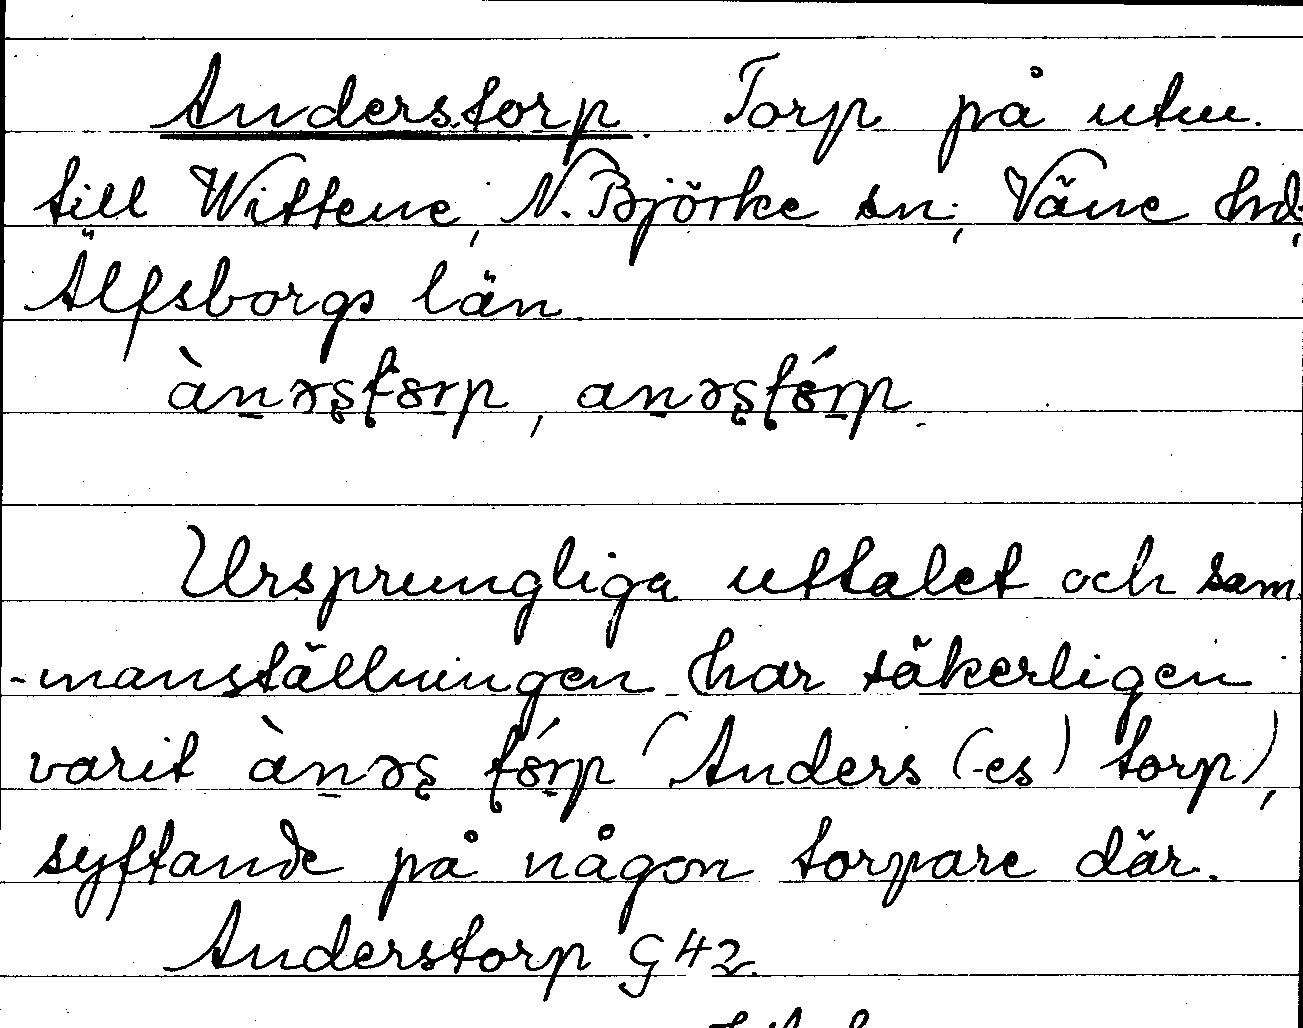 Anderstorp. Torp på utm.
till Wittene, N. Björke sn., Väne hd.,
Älfsborgs län.
àn̠əʂʈ8r̠p, an̠əʂʈ8́r̠p.
Ursprungliga uttalet och sam
-manställningen har säkerligen
varit àn̠əʂ ʈ8́r̠p (Anders (-es) torp),
syftande på någon torpare där.
Anderstorp G 42.